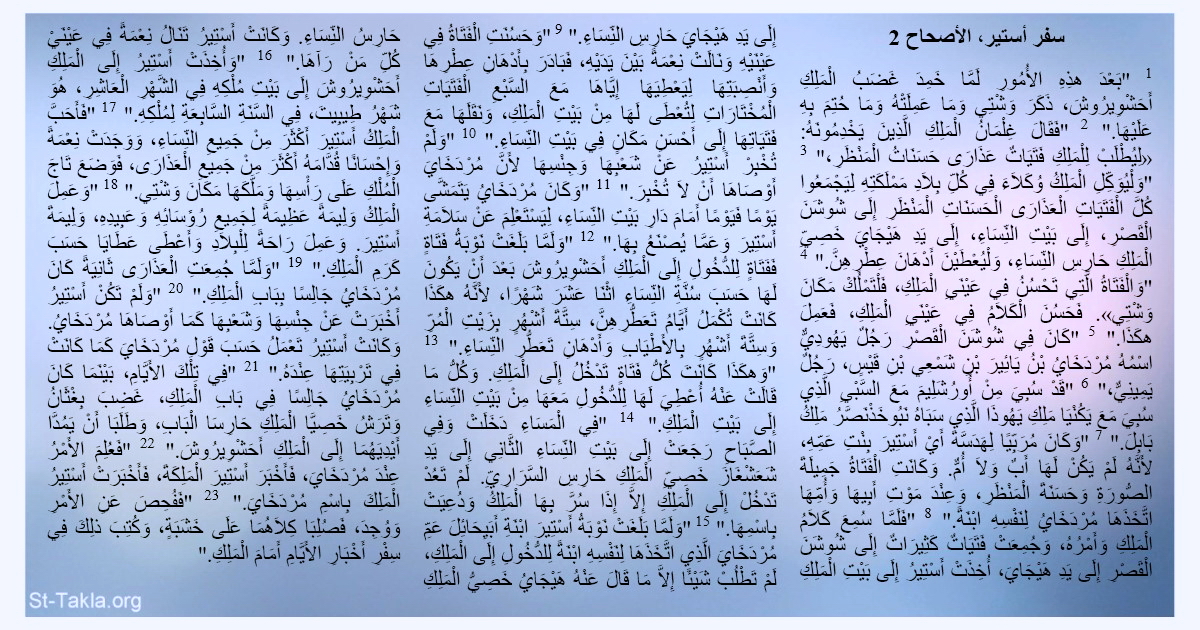 سفر أستير، الأصحاح 2
1 "بَعْدَ هذِهِ الأُمُورِ لَمَّا خَمِدَ غَضَبُ الْمَلِكِ
أَحَشْوِيرُوشَ، ذَكَرَ وَشْتِي وَمَا عَمِلَتْهُ وَمَا حُتِمَ بِهِ
عَلَيْهَا." 2 "فَقَالَ غِلْمَانُ الْمَلِكِ الَّذِينَ يَخْدِمُونَهُ:
«لِيُطْلَبْ لِلْمَلِكِ فَتَيَاتٌ عَذَارَى حَسَنَاتُ الْمَنْظَرِ،" 3
"وَلْيُوَكِّلِ الْمَلِكُ وُكَلاَءَ فِي كُلِّ بِلاَدِ مَمْلَكَتِهِ لِيَجْمَعُوا
كُلَّ الْفَتَيَاتِ الْعَذَارَى الْحَسَنَاتِ الْمَنْظَرِ إِلَى شُوشَنَ
الْقَصْرِ، إِلَى بَيْتِ النِّسَاءِ، إِلَى يَدِ هَيْجَايَ خَصِيِّ
الْمَلِكِ حَارِسِ النِّسَاءِ، وَلْيُعْطَيْنَ أَدْهَانَ عِطْرِهِنَّ." 4
"وَالْفَتَاةُ الَّتِي تَحْسُنُ فِي عَيْنَيِ الْمَلِكِ، فَلْتَمْلُكْ مَكَانَ
وَشْتِي». فَحَسُنَ الْكَلاَمُ فِي عَيْنَيِ الْمَلِكِ، فَعَمِلَ
هكَذَا." 5 "كَانَ فِي شُوشَنَ الْقَصْرِ رَجُلٌ يَهُودِيٌّ
اسْمُهُ مُرْدَخَايُ بْنُ يَائِيرَ بْنِ شَمْعِي بْنِ قَيْسٍ، رَجُلٌ
يَمِينِيٌّ،" 6 "قَدْ سُبِيَ مِنْ أُورُشَلِيمَ مَعَ السَّبْيِ الَّذِي
سُبِيَ مَعَ يَكُنْيَا مَلِكِ يَهُوذَا الَّذِي سَبَاهُ نَبُوخَذْنَصَّرُ مَلِكُ
بَابِلَ." 7 "وَكَانَ مُرَبِّيًا لِهَدَسَّةَ أَيْ أَسْتِيرَ بِنْتِ عَمِّهِ،
لأَنَّهُ لَمْ يَكُنْ لَهَا أَبٌ وَلاَ أُمٌّ. وَكَانَتِ الْفَتَاةُ جَمِيلَةَ
الصُّورَةِ وَحَسَنَةَ الْمَنْظَرِ، وَعِنْدَ مَوْتِ أَبِيهَا وَأُمِّهَا
اتَّخَذَهَا مُرْدَخَايُ لِنَفْسِهِ ابْنَةً." 8 "فَلَمَّا سُمِعَ كَلاَمُ
الْمَلِكِ وَأَمْرُهُ، وَجُمِعَتْ فَتَيَاتٌ كَثِيرَاتٌ إِلَى شُوشَنَ
الْقَصْرِ إِلَى يَدِ هَيْجَايَ، أُخِذَتْ أَسْتِيرُ إِلَى بَيْتِ الْمَلِكِ
إِلَى يَدِ هَيْجَايَ حَارِسِ النِّسَاءِ." 9 "وَحَسُنَتِ الْفَتَاةُ فِي
عَيْنَيْهِ وَنَالَتْ نِعْمَةً بَيْنَ يَدَيْهِ، فَبَادَرَ بِأَدْهَانِ عِطْرِهَا
وَأَنْصِبَتِهَا لِيُعْطِيَهَا إِيَّاهَا مَعَ السَّبْعِ الْفَتَيَاتِ
الْمُخْتَارَاتِ لِتُعْطَى لَهَا مِنْ بَيْتِ الْمَلِكِ، وَنَقَلَهَا مَعَ
فَتَيَاتِهَا إِلَى أَحْسَنِ مَكَانٍ فِي بَيْتِ النِّسَاءِ." 10 "وَلَمْ
تُخْبِرْ أَسْتِيرُ عَنْ شَعْبِهَا وَجِنْسِهَا لأَنَّ مُرْدَخَايَ
أَوْصَاهَا أَنْ لاَ تُخْبِرَ." 11 "وَكَانَ مُرْدَخَايُ يَتَمَشَّى
يَوْمًا فَيَوْمًا أَمَامَ دَارِ بَيْتِ النِّسَاءِ، لِيَسْتَعْلِمَ عَنْ سَلاَمَةِ
أَسْتِيرَ وَعَمَّا يُصْنَعُ بِهَا." 12 "وَلَمَّا بَلَغَتْ نَوْبَةُ فَتَاةٍ
فَفَتَاةٍ لِلدُّخُولِ إِلَى الْمَلِكِ أَحَشْوِيرُوشَ بَعْدَ أَنْ يَكُونَ
لَهَا حَسَبَ سُنَّةِ النِّسَاءِ اثْنَا عَشَرَ شَهْرًا، لأَنَّهُ هكَذَا
كَانَتْ تُكْمَلُ أَيَّامُ تَعَطُّرِهِنَّ، سِتَّةَ أَشْهُرٍ بِزَيْتِ الْمُرِّ
وَسِتَّةَ أَشْهُرٍ بِالأَطْيَابِ وَأَدْهَانِ تَعَطُّرِ النِّسَاءِ." 13
"وَهكَذَا كَانَتْ كُلُّ فَتَاةٍ تَدْخُلُ إِلَى الْمَلِكِ. وَكُلُّ مَا
قَالَتْ عَنْهُ أُعْطِيَ لَهَا لِلدُّخُولِ مَعَهَا مِنْ بَيْتِ النِّسَاءِ
إِلَى بَيْتِ الْمَلِكِ." 14 "فِي الْمَسَاءِ دَخَلَتْ وَفِي
الصَّبَاحِ رَجَعَتْ إِلَى بَيْتِ النِّسَاءِ الثَّانِي إِلَى يَدِ
شَعَشْغَازَ خَصِيِّ الْمَلِكِ حَارِسِ السَّرَارِيِّ. لَمْ تَعُدْ
تَدْخُلْ إِلَى الْمَلِكِ إِلاَّ إِذَا سُرَّ بِهَا الْمَلِكُ وَدُعِيَتْ
بِاسْمِهَا." 15 "وَلَمَّا بَلَغَتْ نَوْبَةُ أَسْتِيرَ ابْنَةِ أَبِيحَائِلَ عَمِّ
مُرْدَخَايَ الَّذِي اتَّخَذَهَا لِنَفْسِهِ ابْنَةً لِلدُّخُولِ إِلَى الْمَلِكِ،
لَمْ تَطْلُبْ شَيْئًا إِلاَّ مَا قَالَ عَنْهُ هَيْجَايُ خَصِيُّ الْمَلِكِ
حَارِسُ النِّسَاءِ. وَكَانَتْ أَسْتِيرُ تَنَالُ نِعْمَةً فِي عَيْنَيْ
كُلِّ مَنْ رَآهَا." 16 "وَأُخِذَتْ أَسْتِيرُ إِلَى الْمَلِكِ
أَحَشْوِيرُوشَ إِلَى بَيْتِ مُلْكِهِ فِي الشَّهْرِ الْعَاشِرِ، هُوَ
شَهْرُ طِيبِيتَ، فِي السَّنَةِ السَّابِعَةِ لِمُلْكِهِ." 17 "فَأَحَبَّ
الْمَلِكُ أَسْتِيرَ أَكْثَرَ مِنْ جَمِيعِ النِّسَاءِ، وَوَجَدَتْ نِعْمَةً
وَإِحْسَانًا قُدَّامَهُ أَكْثَرَ مِنْ جَمِيعِ الْعَذَارَى، فَوَضَعَ تَاجَ
الْمُلْكِ عَلَى رَأْسِهَا وَمَلَّكَهَا مَكَانَ وَشْتِي." 18 "وَعَمِلَ
الْمَلِكُ وَلِيمَةً عَظِيمَةً لِجَمِيعِ رُؤَسَائِهِ وَعَبِيدِهِ، وَلِيمَةَ
أَسْتِيرَ. وَعَمِلَ رَاحَةً لِلْبِلاَدِ وَأَعْطَى عَطَايَا حَسَبَ
كَرَمِ الْمَلِكِ." 19 "وَلَمَّا جُمِعَتِ الْعَذَارَى ثَانِيَةً كَانَ
مُرْدَخَايُ جَالِسًا بِبَابِ الْمَلِكِ." 20 "وَلَمْ تَكُنْ أَسْتِيرُ
أَخْبَرَتْ عَنْ جِنْسِهَا وَشَعْبِهَا كَمَا أَوْصَاهَا مُرْدَخَايُ.
وَكَانَتْ أَسْتِيرُ تَعْمَلُ حَسَبَ قَوْلِ مُرْدَخَايَ كَمَا كَانَتْ
فِي تَرْبِيَتِهَا عِنْدَهُ." 21 "فِي تِلْكَ الأَيَّامِ، بَيْنَمَا كَانَ
مُرْدَخَايُ جَالِسًا فِي بَابِ الْمَلِكِ، غَضِبَ بِغْثَانُ
وَتَرَشُ خَصِيَّا الْمَلِكِ حَارِسَا الْبَابِ، وَطَلَبَا أَنْ يَمُدَّا
أَيْدِيَهُمَا إِلَى الْمَلِكِ أَحَشْوِيرُوشَ." 22 "فَعُلِمَ الأَمْرُ
عِنْدَ مُرْدَخَايَ، فَأَخْبَرَ أَسْتِيرَ الْمَلِكَةَ، فَأَخْبَرَتْ أَسْتِيرُ
الْمَلِكَ بِاسْمِ مُرْدَخَايَ." 23 "فَفُحِصَ عَنِ الأَمْرِ
وَوُجِدَ، فَصُلِبَا كِلاَهُمَا عَلَى خَشَبَةٍ، وَكُتِبَ ذلِكَ فِي
سِفْرِ أَخْبَارِ الأَيَّامِ أَمَامَ الْمَلِكِ."
St-Takla.org